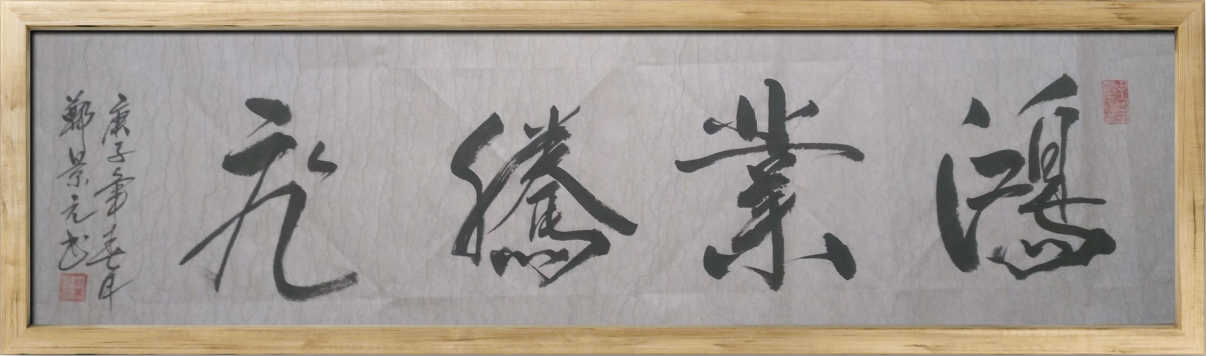 鴻業騰飛
庚子年春月
鄭景元书